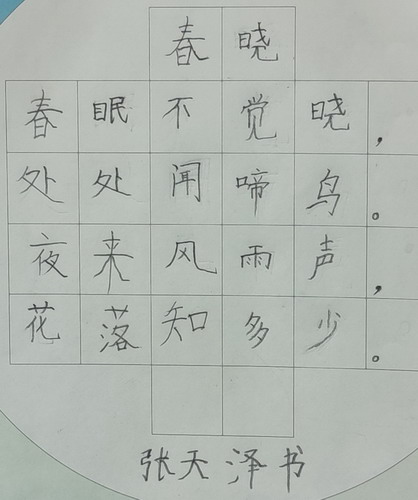 春晓
春眠不觉晓，
处处闻啼鸟。
夜来风雨声，
花落知多少。
张天泽书